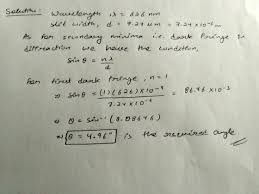 Solution: Wavelength, λ = 626 nm
Slit width, d = 7.24 μm = 7.24 × 10⁻⁶ m
As for secondary minima i.e. dark fringe in
diffraction we have the condition,
sinθ = nλ/d
For first dark fringe, n = 1
⇒ sinθ = (1)(626) × 10⁻⁹ / 7.24 × 10⁻⁶ = 86.46 × 10⁻³
⇒ θ = sin⁻¹ (0.08646)
⇒ θ = 4.96° is the required angle.